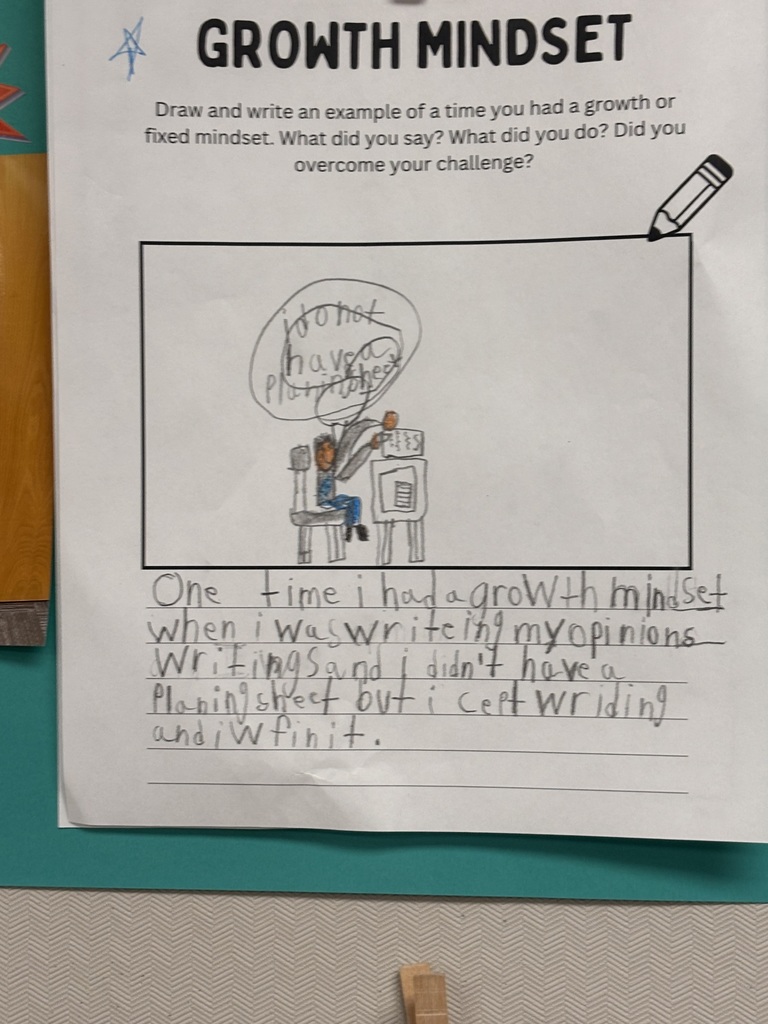 GROWTH MINDSET
Draw and write an example of a time you had a growth or
fixed mindset. What did you say? What did you do? Did you
overcome your challenge?
i do not
have a
planing sheet
One time i had a growth mindset
when i was writeing my opinions
writings and i didn't have a
planing sheet but i cept wriding
and i w fin it.